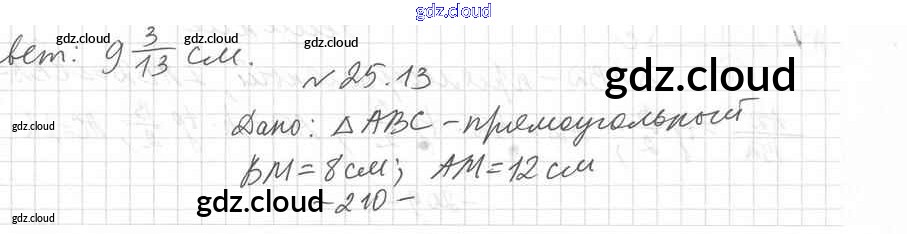 gdz.cloud
gdz.cloud gdz.cloud gdz.cloud
вет: 9 3/13 см.
N 25.13
gdz.cloud
gdz.cloud Дано: △ABC - прямоугольный
BM = 8 см; AM = 12 см
gdz.cloud gdz.cloud gdz.cloud
- 210 -